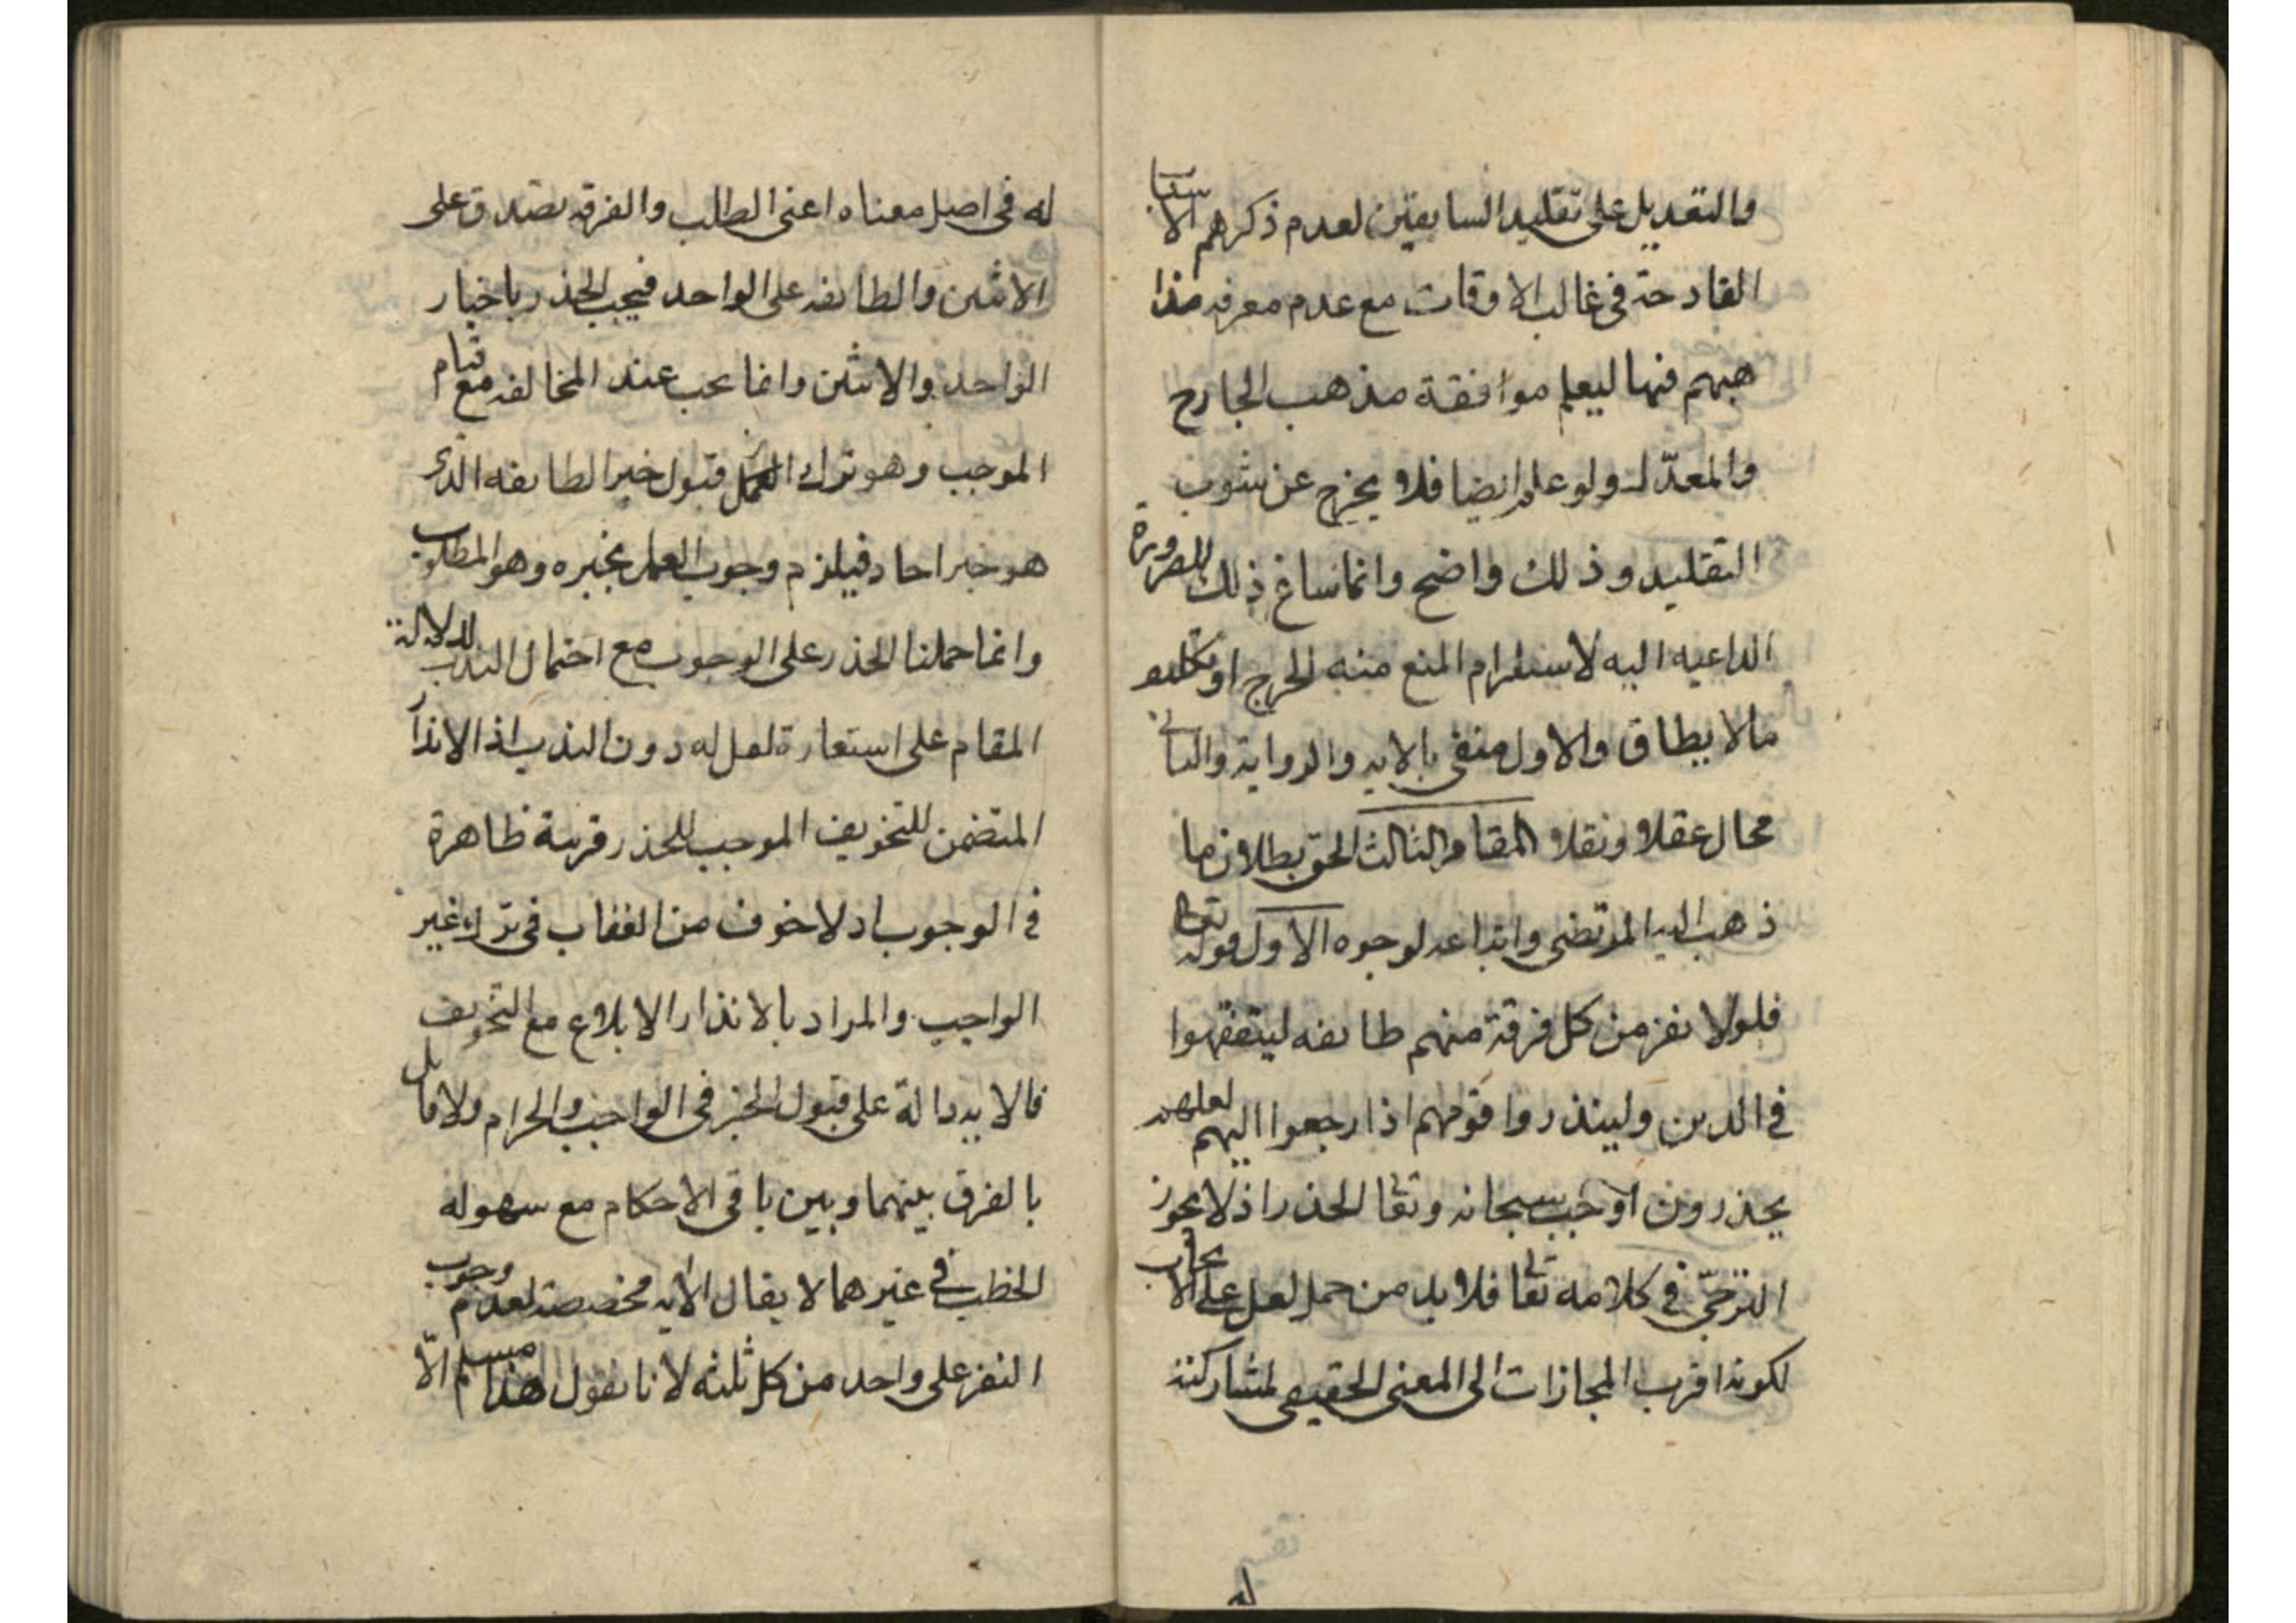 والتعديل على تقليد السابقين لعدم ذكرهم الاسباب
القادحة في غالب الاوقات مع عدم معرفه مذا
هبهم فيها ليعلم موافقة مذهب الجارح
والمعدّل ولو علم ايضا فلا يخرج عن شوب
التقليد وذلك واضح وانما ساغ ذلك للضرورة
الداعيه اليه لاستلزام المنع منه الحرج او تكليف
مالا يطاق والاول منفي بالايه والرواية والثاني
محال عقلا ونقلا المقام الثالث الحق بطلان ما
ذهب اليه المرتضى واتباعه لوجوه الاول قوله تعالى
فلولا نفر من كل فرقة منهم طائفه ليتفقهوا
في الدين ولينذروا قومهم اذا رجعوا اليهم لعلهم
يحذرون اوجب سبحانه وتعا الحذر اذ لا يجوز
الترجّي في كلامه تعا فلا بد من حمل لعل على الايجاب
لكونه اقرب المجازات الى المعنى الحقيقي لمشاركته
له
له في اصل معناه اعنى الطلب والفرقه تصدق على
الاثنين والطائفه على الواحد فيجب الحذر باخبار
الواحد والاثنين وانما يجب عند المخالفه مع قيام
الموجب وهو ترك العمل قبول خبر الطائفه الذي
هو خبر احاد فيلزم وجوب العمل بخبره وهو المطلوب
وانما حملنا الحذر على الوجوب مع احتمال الندب لدلالة
المقام على استعارة لعل له دون الندب اذ الانذار
المتضمن للتخويف الموجب للحذر قرينة ظاهرة
في الوجوب اذ لا خوف من العقاب في ترك غير
الواجب والمراد بالانذار الابلاغ مع التخويف
فالايه دالة على قبول الخبر في الواجب والحرام ولا قائل
بالفرق بينهما وبين باقي الاحكام مع سهوله
الخطب في غيرهما لا يقال الايه مخصصة لعدم وجوب
النفر على واحد من كل ثلثه لانا نقول هذا مسلم الّا